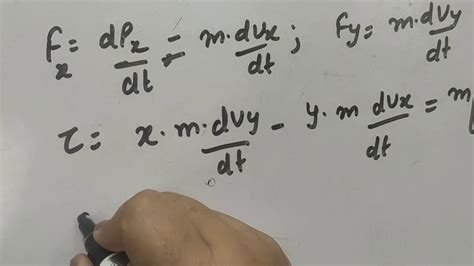 Fx = dPx/dt = m·dVx/dt ; Fy = m·dVy/dt
τ = x·m·dVy/dt - y·m dVx/dt = m